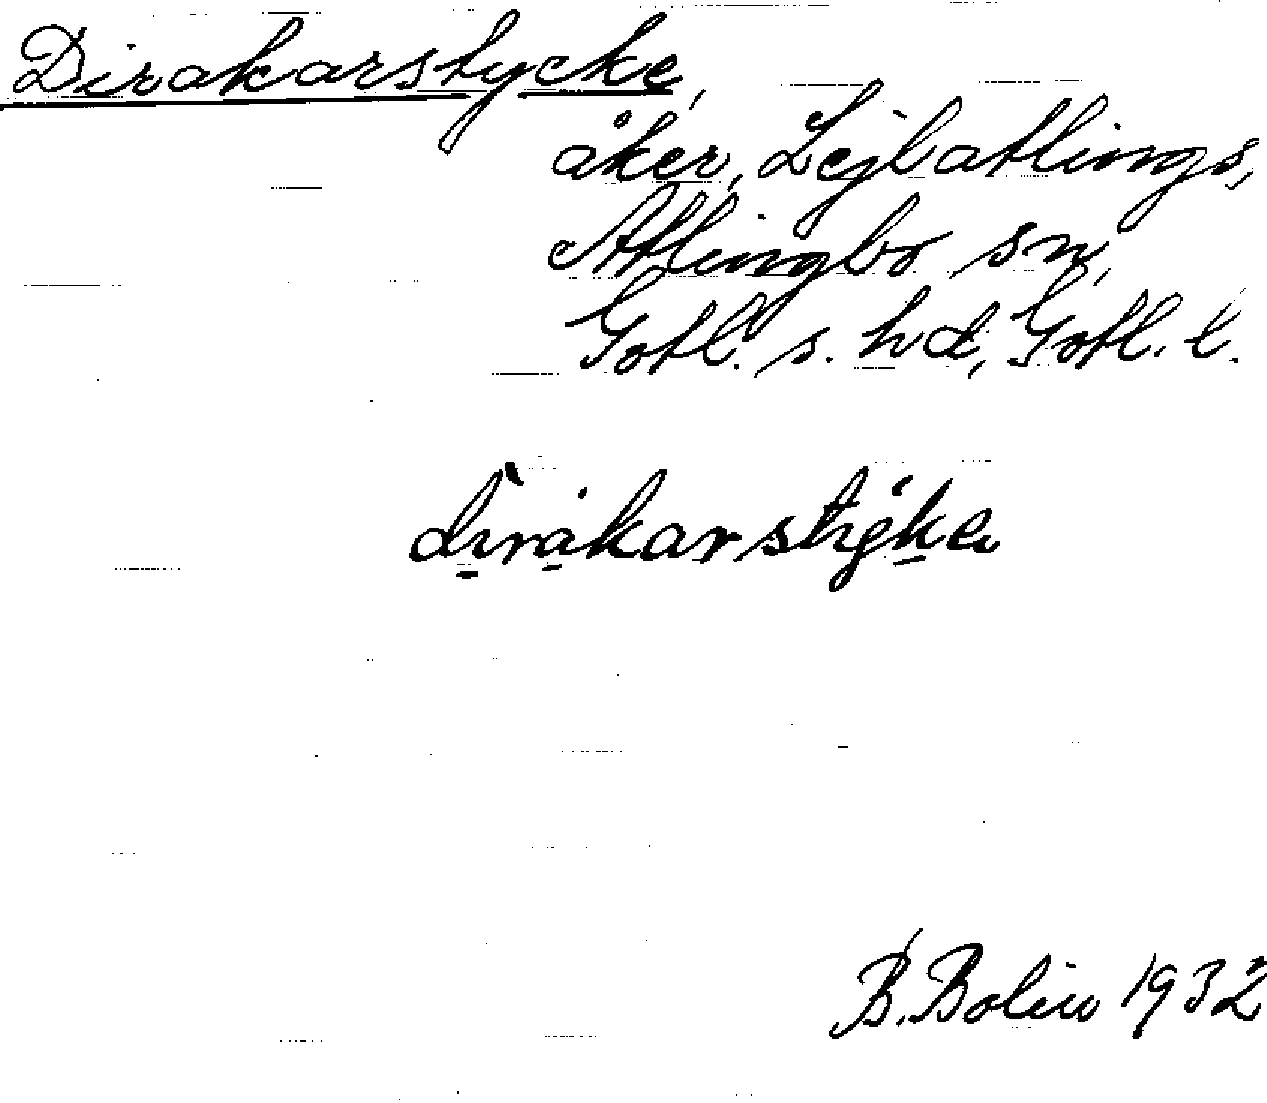 Dirakarstycke,
åker, Lejlatlings,
Atlingbo sn,
Gotl. s. hd, Gotl. l.
dìrákarstýke
B. Bolin 1932